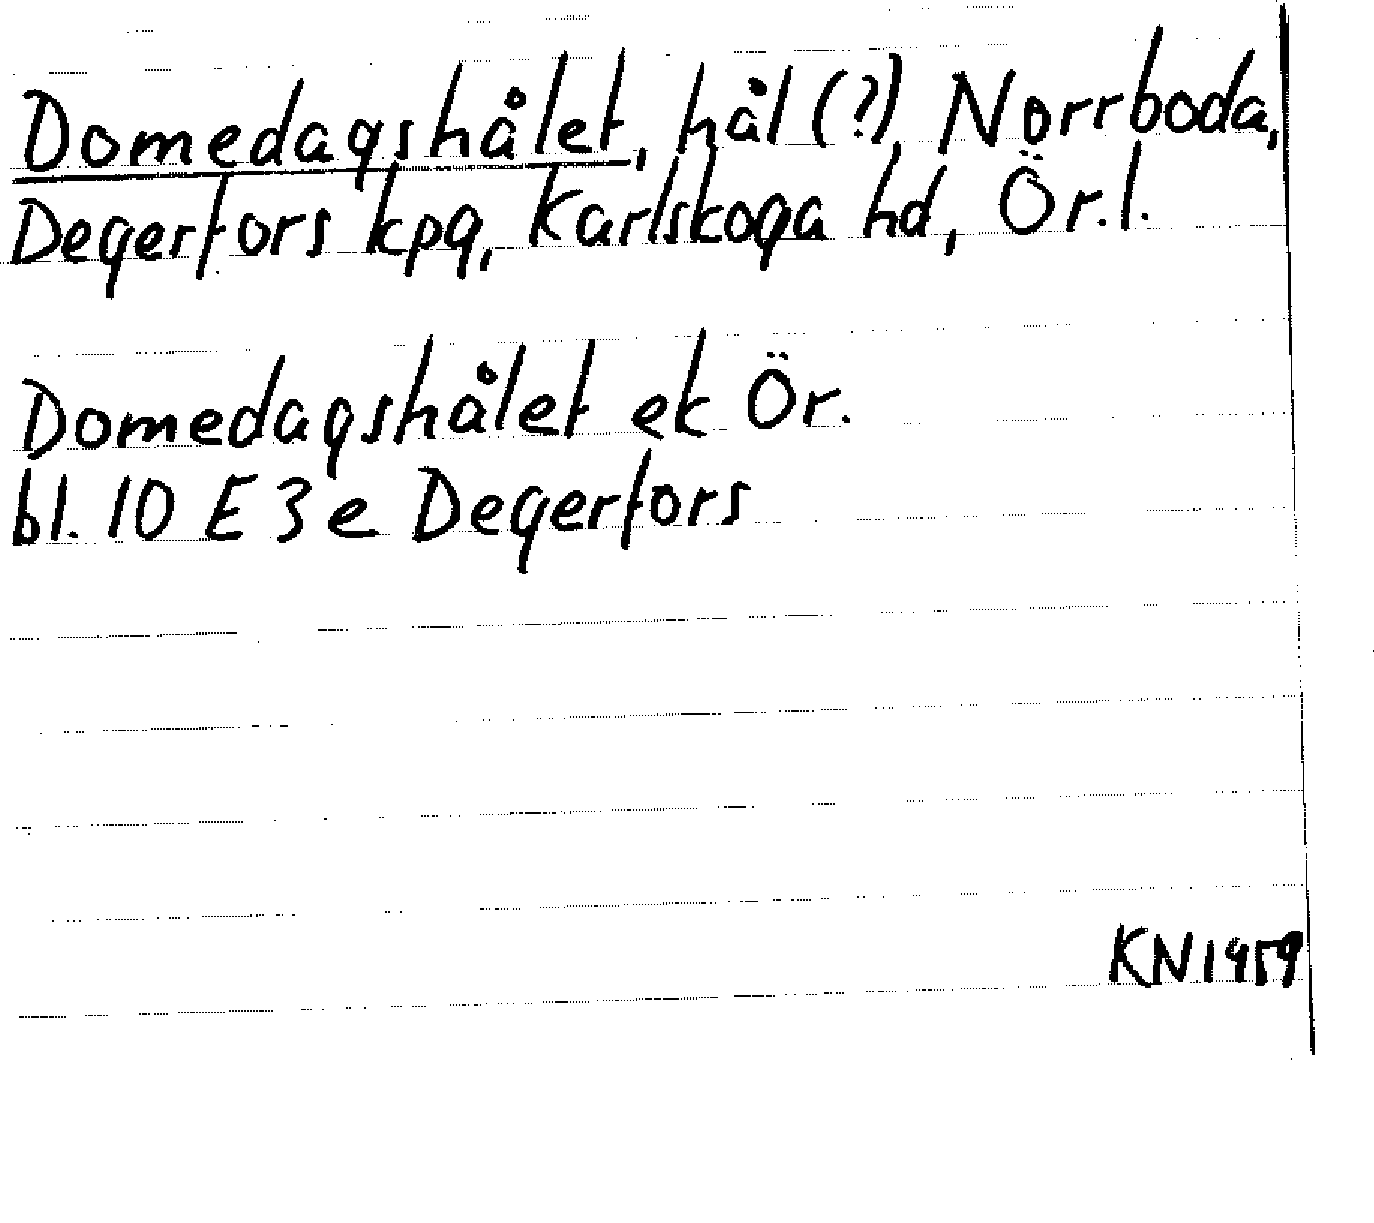 Domedagshålet, hål (?), Norrboda,
Degerfors kpg, Karlskoga hd, Ör. l.
Domedagshålet ek Ör.
bl. 10 E 3 e Degerfors
KN 1959